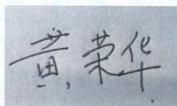 黄荣华